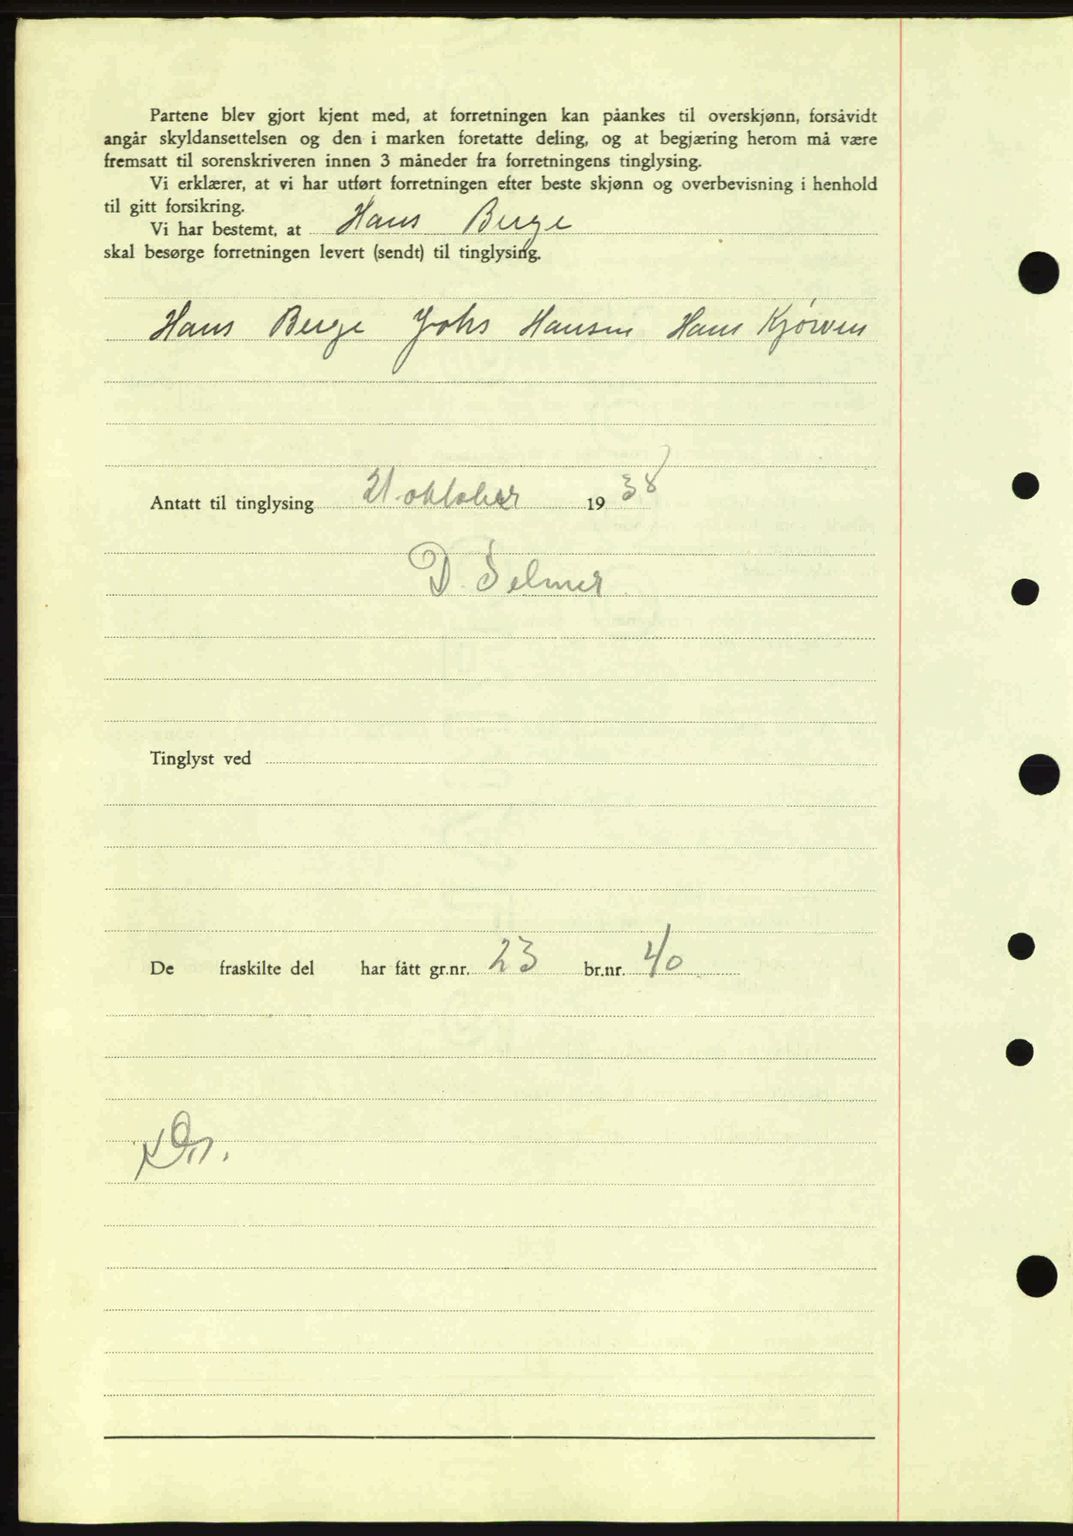 Partene blev gjort kjent med, at forretningen kan påankes til overskjønn, forsåvidt
angår skyldansettelsen og den i marken foretatte deling, og at begjæring herom må være
fremsatt til sorenskriveren innen 3 måneder fra forretningens tinglysing.
Vi erklærer, at vi har utført forretningen efter beste skjønn og overbevisning i henhold
til gitt forsikring.
Vi har bestemt, at Hans Berge
skal besørge forretningen levert (sendt) til tinglysing.
Hans Berge Johs Hansen Hans Kjørven
Antatt til tinglysing 21 oktober 1938
D. Selmer
Tinglyst ved
De fraskilte del har fått gr.nr. 23 br.nr. 40